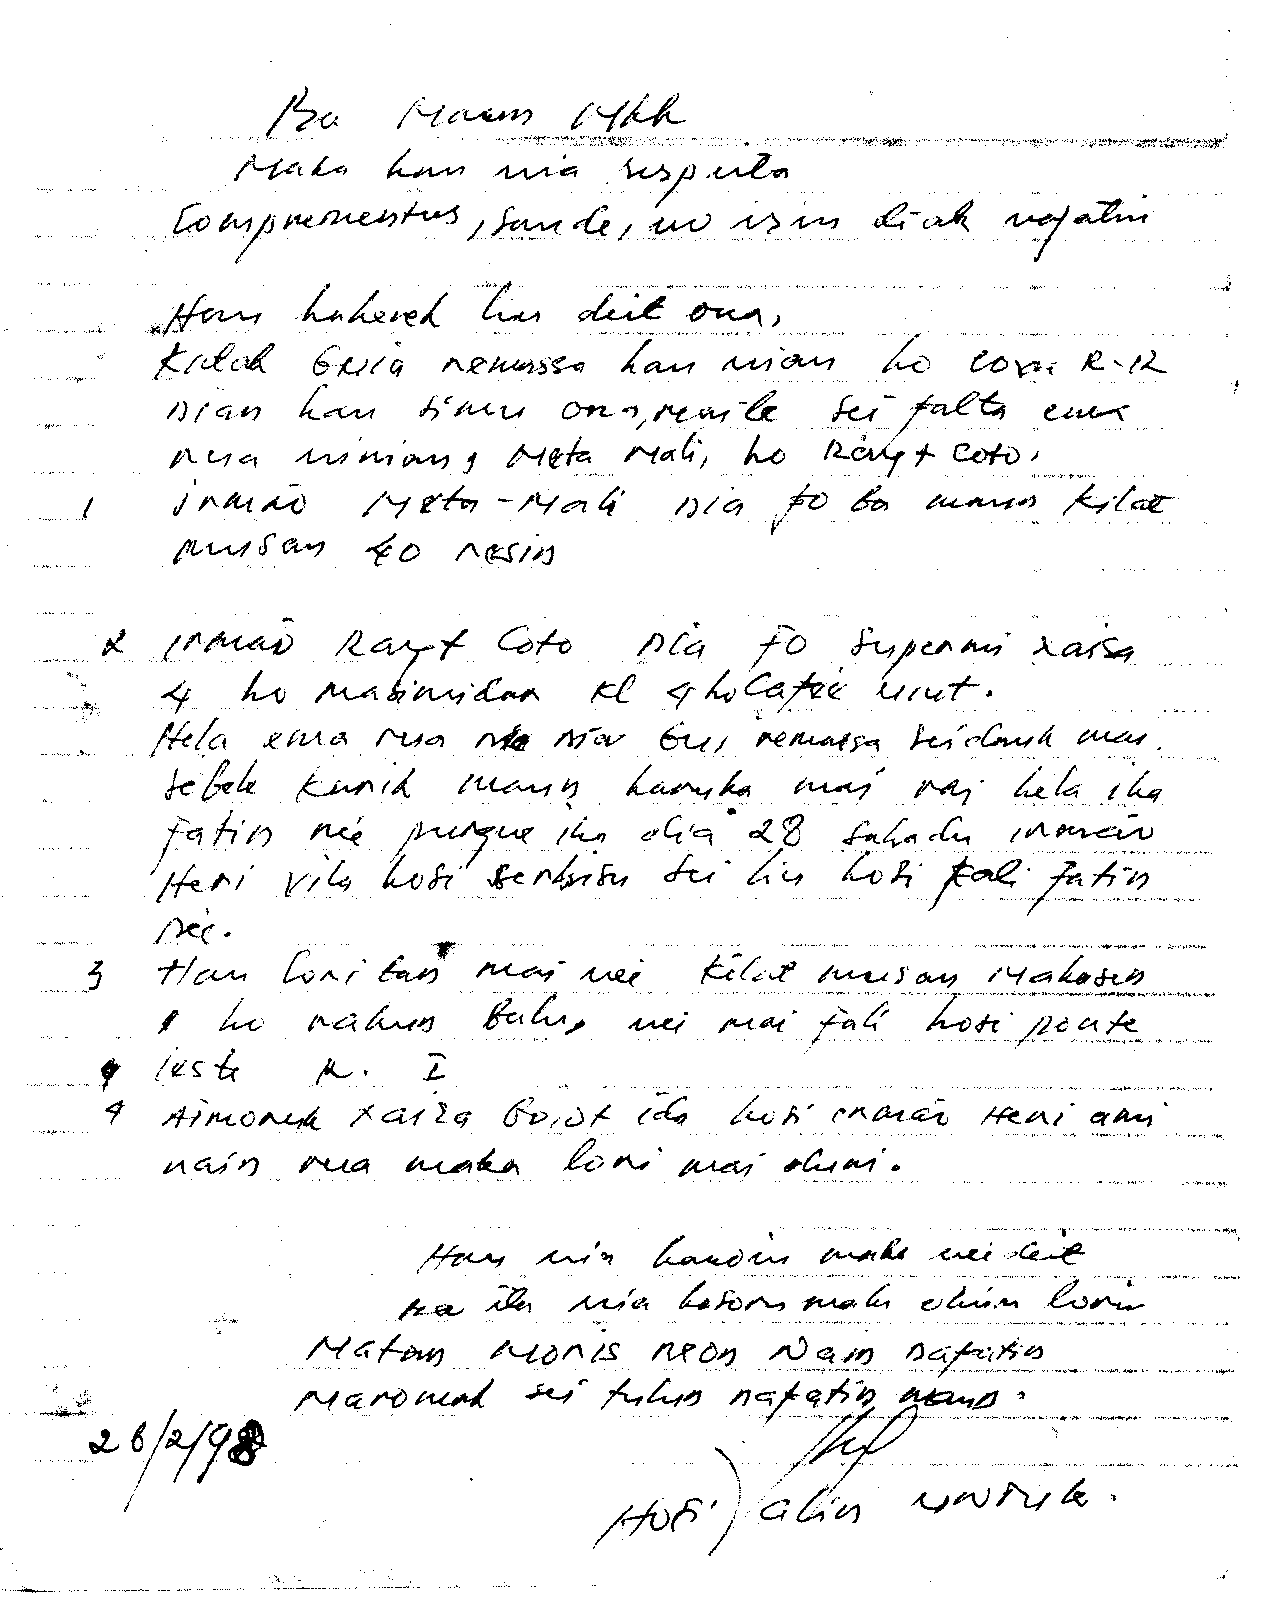 Ba Maun Mkk
Maka hau nia resputa
Comprementus, saude, no isin diak nafatin
Hau hakerek liu deit ona,
Kilat Gria remessa hau nian ho cova R-12
nian hau simu ona, sei falta ema
rua ninian, Meta Mali, ho Rayt Coto,
1 irmão Meta-Mali nia fo ba maun kilat
musan 40 resin
2 irmão Rayt Coto nia fo Supermi xaisa
4 ho masimidar kl 4 ho Cafee uut.
Hela ema rua nia remessa seidauk mai.
Sebele karik maun haruka mai rai hela iha
fatin neé purque iha dia 28 irmão
Heri Vila hosi serbisu sei liu hosi fali fatin
neé.
3 Hau lori tan mai neé kilat musan Makasen
1 ho nahun Buhu, neé mai fali hosi ponte
leste R. I
4 Aimoruk xaiza boot ida hosi irmão Heri ami
nain rua maka lori mai duni.
Hau nia maka neé deit
ita nia maka lori
Matan Moris neon Nain nafatin
Maromak sei tulun nafatin maun.
26/2/98
Hosi alin